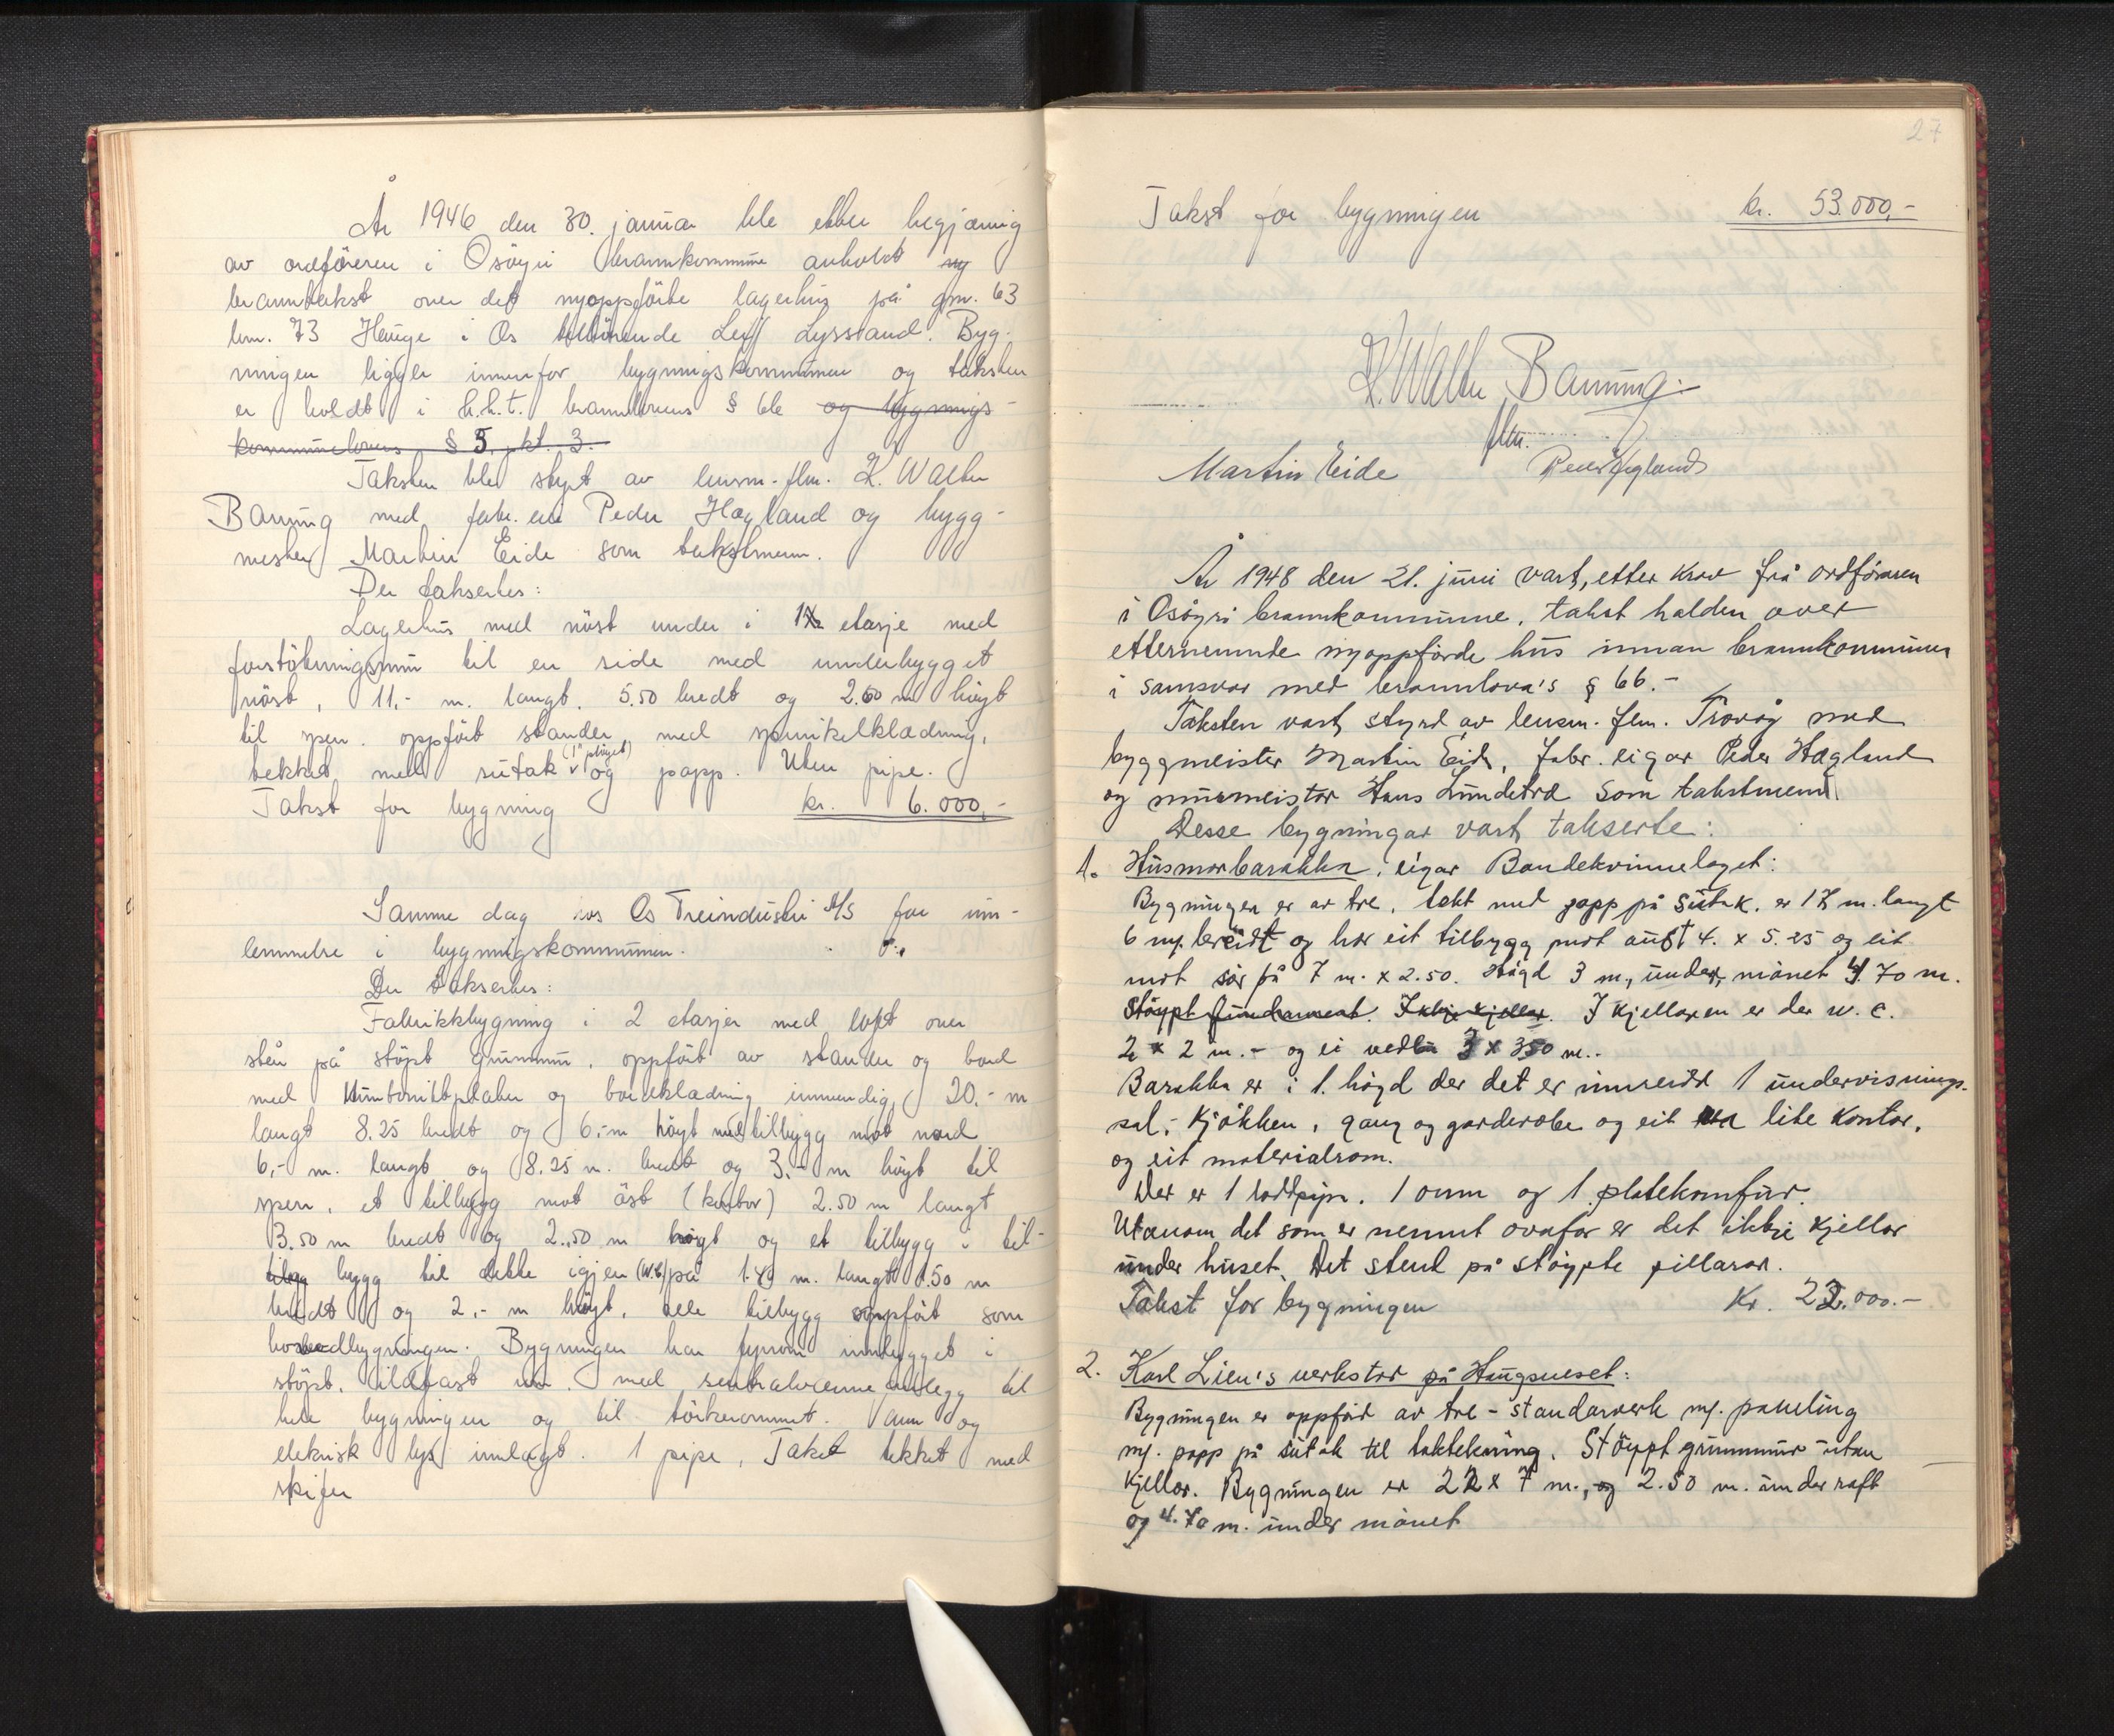 År 1946 den 30. januar ble etter begjæring
av ordföreren i Osöyri brannkommune avholdt ny
branntakst over det nyoppförte lagerhus på gnr. 63
bnr. 73 Hauge i Os tilhörende Leif Lyssand. Byg-
ningen ligger innenfor bygningskommunen og taksten
er holdt i h.h.t. brannlovens § 66 og bygnings-
kommunelovens § 5, pkt. 3.
Taksten ble styrt av lensm.-flm. K. Walter
Banung med fabr. eier Peder Hagland og bygg-
mester Martin Eide som takstmenn.
Der takseres:
Lagerhus med nöst under i 1 etasje med
forstötningsmur til en side med underbygget
nöst, 11,- m. langt, 5.50 bredt og 2.60 m höyt
til sper. oppfört stander, med spunnkledning,
tekket med sutak (1" plöyet) og papp. Uten pipe.
Takst for bygning kr. 6.000,-
Samme dag hos Os Treindustri A/S for inn-
lemmelse i bygningskommunen.
Der takseres:
Fabrikkbygning i 2 etasjer med loft over
står på stöpt grunnmur, oppfört av stander og bord
med Huntonittplater og bordkledning innvendig, 20,- m
langt 8.25 bredt og 6,- m höyt med tilbygg mot nord
6,- m. langt og 8.25 m. bredt og 3,- m höyt til
sper, et tilbygg mot öst (kontor) 2.50 m langt
3.50 m bredt og 2.50 m höyt og et tilbygg i til-
bygg til dette igjen (W.C) på 1.40 m. langt 1.50 m
bredt og 2,- m höyt, alle tilbygg oppfört som
hovedbygningen. Bygningen har fyrrom innbygget i
stöpt, ildfast mur med sentralvarmeanlegg til
hele bygningen og til törkerommet. Vann og
elektrisk lys innlagt. 1 pipe, Taket tekket med
skifer
27
Takst for bygningen kr. 53.000,-
K. Walter Banung
flm.
Martin Eide Peder Hagland
År 1948 den 21. juni vart, etter krav frå ordföraren
i Osöyri brannkommune, takst halden over
etternemnde nyoppförde hus innan brannkommunen
i samsvar med brannlova's § 66.-
Taksten vart styrd av lensm. flm. Trovåg med
byggmeister Martin Eide, fabr. eigar Peder Hagland
og murmeister Hans Lundetræ som takstmenn.
Desse bygningar vart takserte:
1. Husmorbarakka, eigar Bondekvinnelaget:
Bygningen er av tre, tekt med papp på sutak, er 17 m. langt
6 m. breidt og har eit tilbygg mot aust 4. x 5.25 og eit
mot sör på 7 m. x 2.50. Högd 3 m, under mönet 4.70 m.
Stöypt fundament. Ikkje kjellar. I kjellaren er der w.c.
2 x 2 m.- og ei vedbu 3 x 350 m.-
Barakka er i 1. högd der det er innreidd 1 undervisnings-
sal, kjökken, gang og garderobe og eit lite kontor,
og eit materialrom.
Der er 1 loddpipe, 1 omn og 1 platekomfur.
Utanom det som er nemnt ovafor er det ikkje kjellar
under huset. Det stend på stöypte pillarar.
Takst for bygningen Kr. 22.000.-
2. Karl Lien's verkstad på Haugsneset:
Bygningen er oppförd av tre-standarverk m/. paneling
m/. papp på sutak til taktekking. Stöypt grunnmur utan
kjellar. Bygningen er 22 x 7 m., og 2.50 m. under raft
og 4.70 m. under mönet